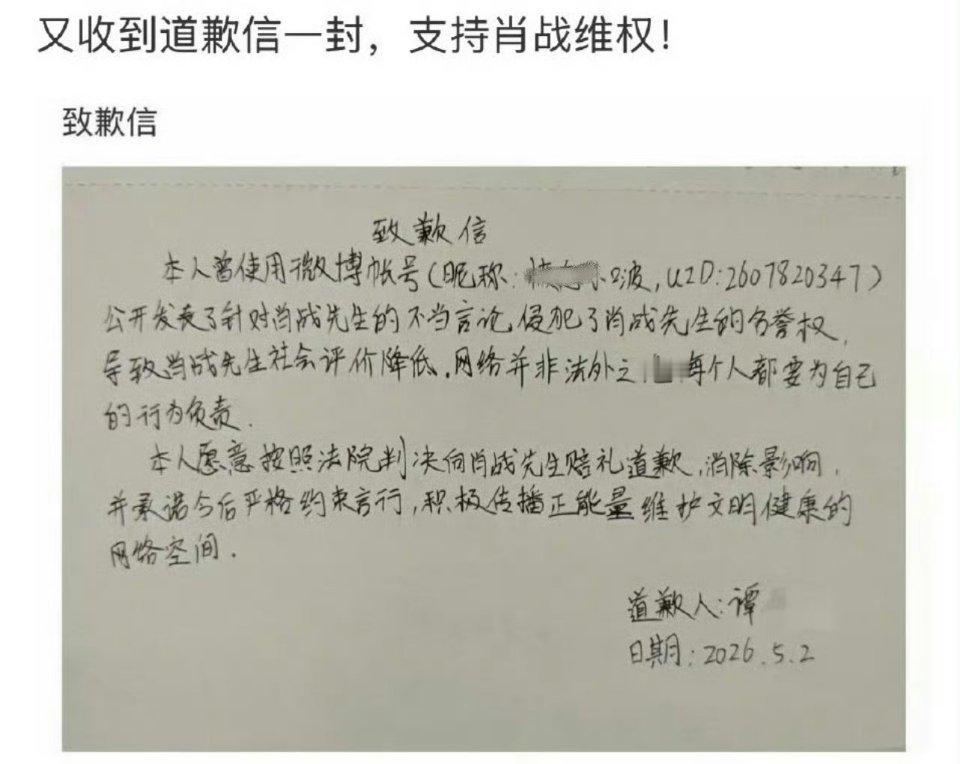 又收到道歉信一封，支持肖战维权！
致歉信
致歉信
本人曾使用微博帐号(昵称:小波,UID:2607820347)
公开发表了针对肖战先生的不当言论,侵犯了肖战先生的名誉权,
导致肖战先生社会评价降低.网络并非法外之 每个人都要为自己
的行为负责.
本人愿意按照法院判决向肖战先生赔礼道歉,消除影响,
并承诺今后严格约束言行,积极传播正能量维护文明健康的
网络空间.
道歉人:谭
日期:2026.5.2